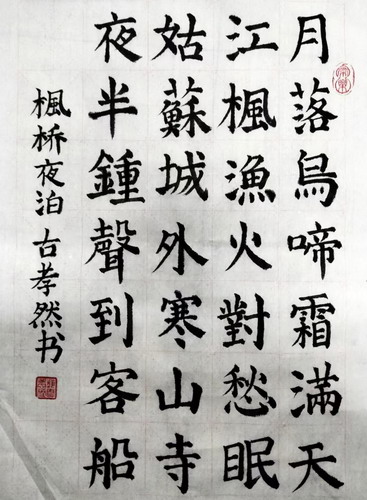 月落烏啼霜滿天
江楓漁火對愁眠
姑蘇城外寒山寺
夜半鍾聲到客船
楓桥夜泊 古孝然书